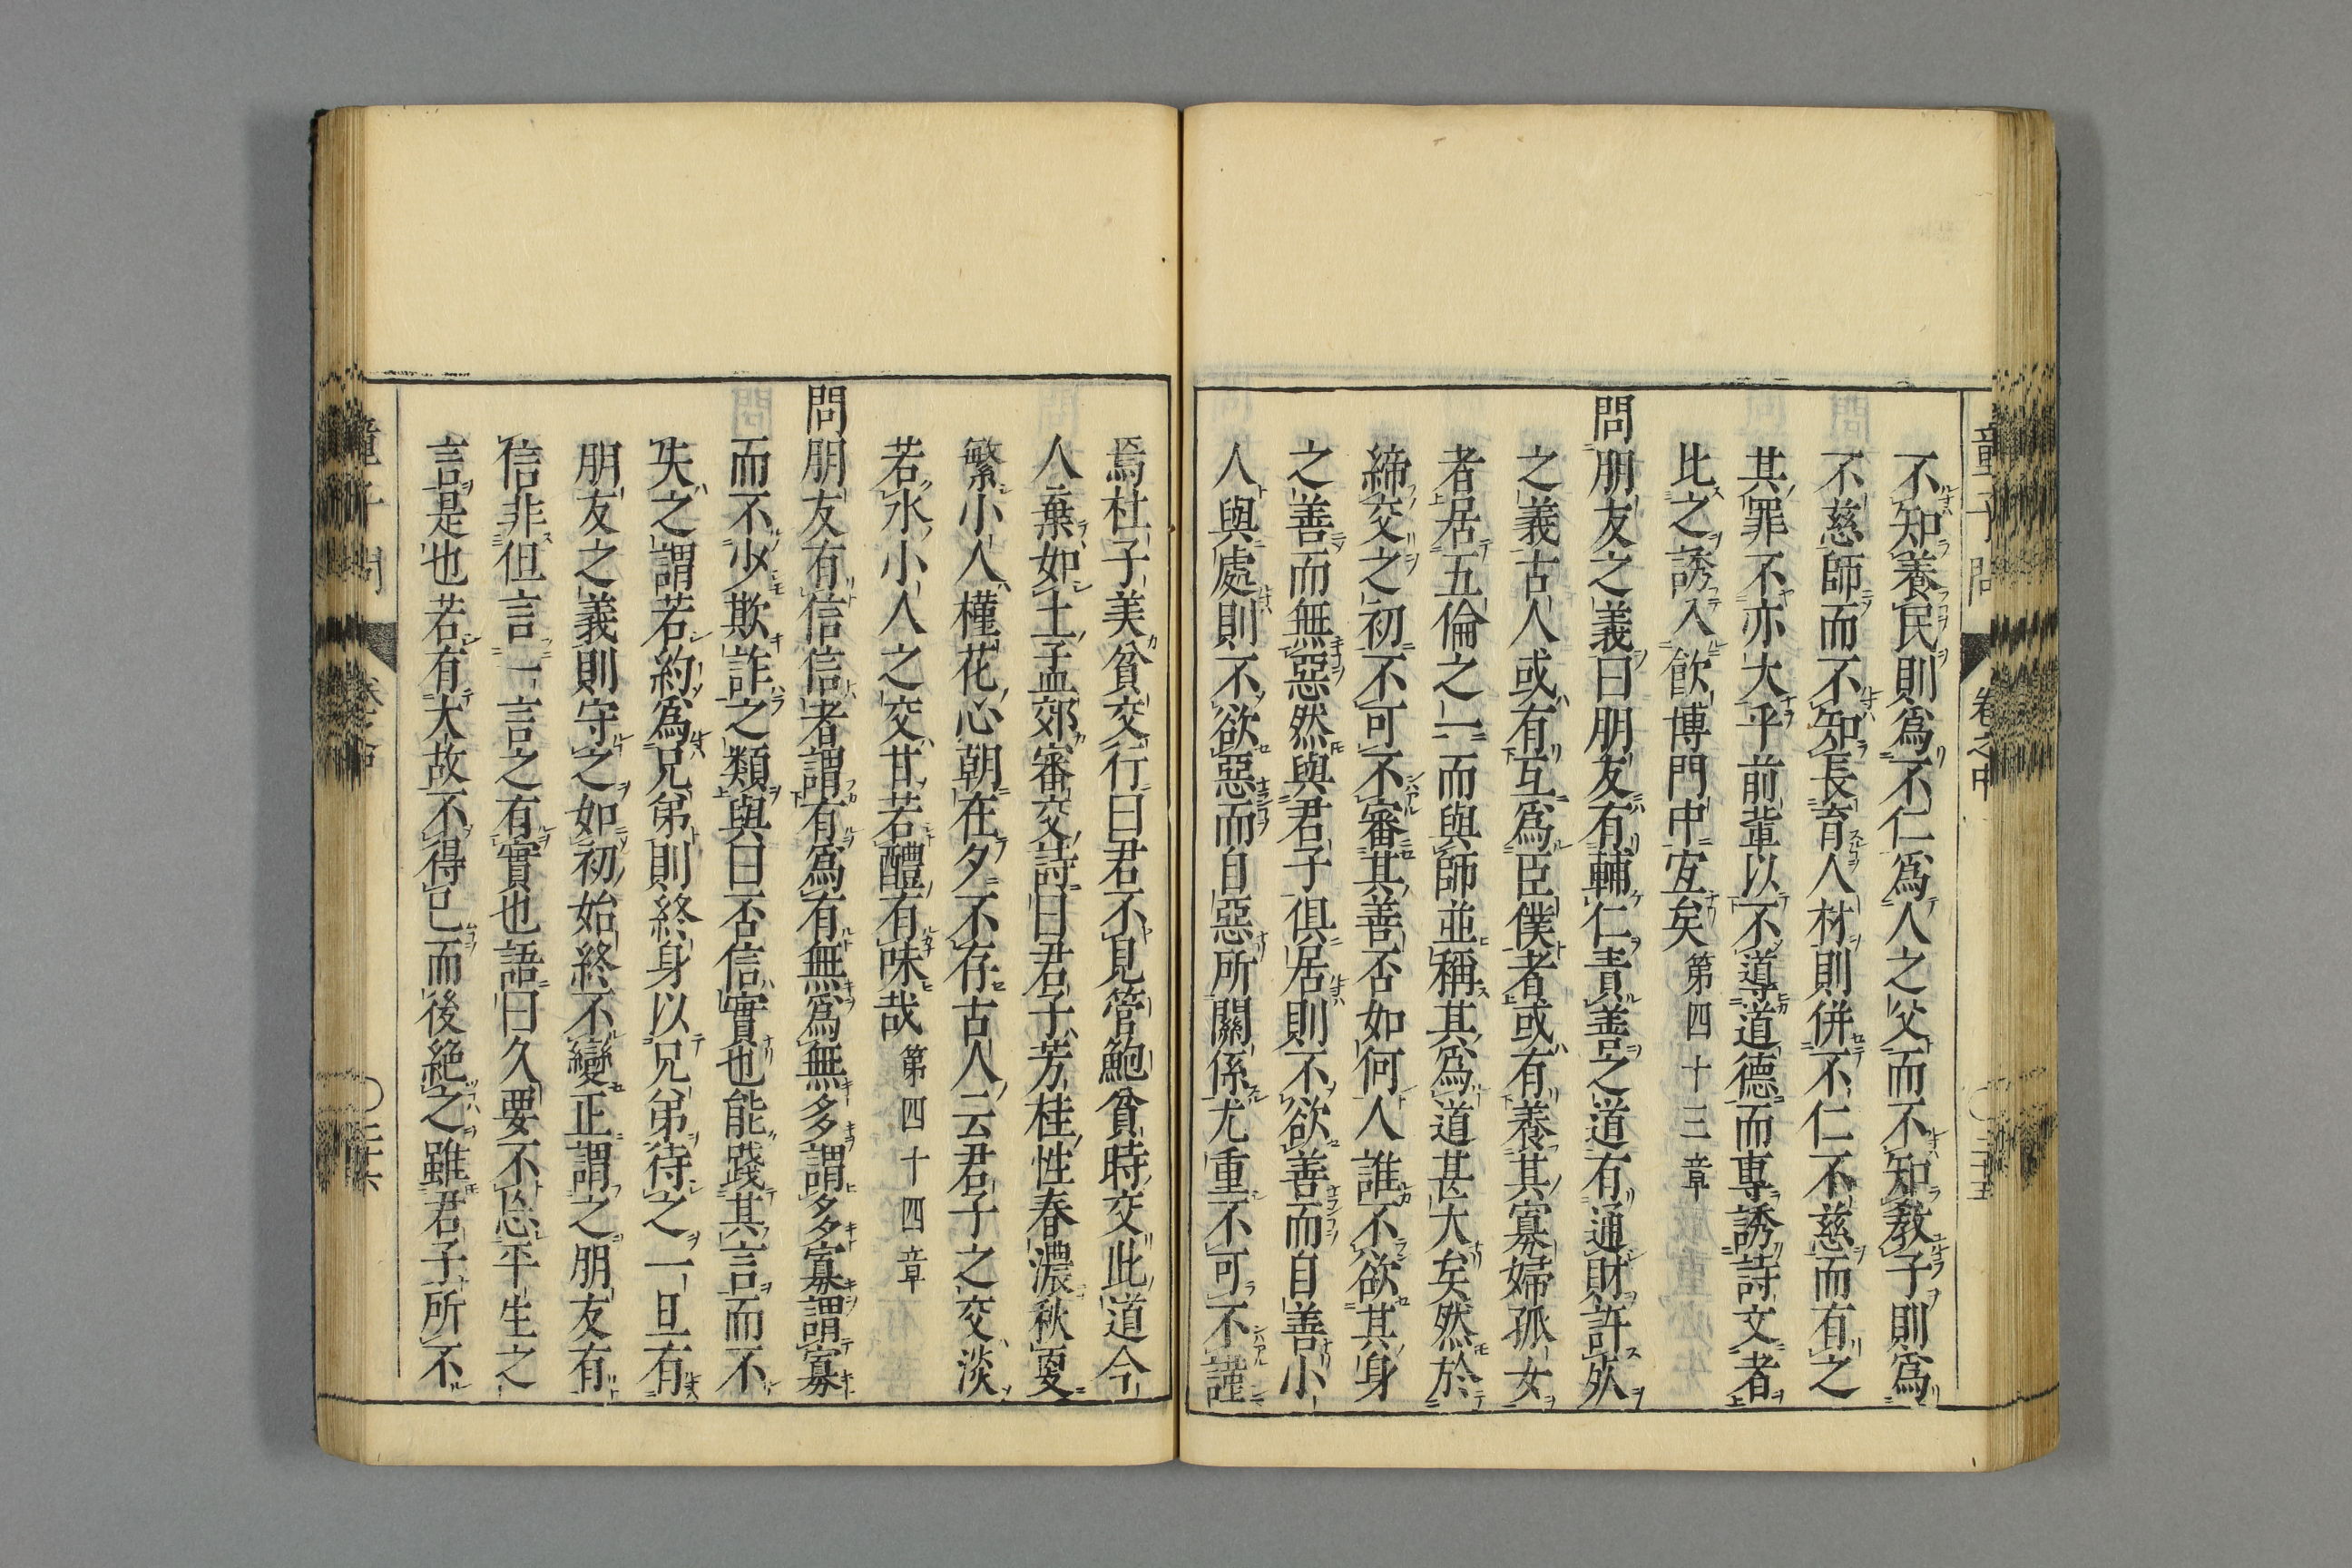 童子問 卷之中 三十五
不知養民則爲不仁爲人之父而不知教子則爲
不慈師而不知長育人材則併不仁不慈而有之
其罪不亦大乎前輩以不導道德而專誘詩文者
比之誘入飮博門中宐矣第四十三章
問朋友之義曰朋友有輔仁責善之道有通財許死
之義古人或有互爲臣僕者或有養其寡婦孤女
者居五倫之一而與師並稱其爲道甚大矣然於
締交之初不可不審其善否如何人誰不欲其身
之善而無惡然與君子俱居則不欲善而自善小
人與處則不欲惡而自惡所關係尤重不可不謹
焉杜子美貧交行曰君不見管鮑貧時交此道今
人棄如土孟郊審交詩曰君子芳桂性春濃秋更
繁小人槿花心朝在夕不存古人云君子之交淡
若水小人之交甘若醴有味哉第四十四章
問朋友有信信者謂有爲有無爲無多謂多寡謂寡
而不少欺詐之類與曰否信實也能踐其言而不
失之謂若約爲兄弟則終身以兄弟待之一旦有
朋友之義則守之如初始終不變正謂之朋友有
信非但言一言之有實也語曰久要不忘平生之
言是也若有大故不得已而後絶之雖君子所不
童子問 卷之中 三十六